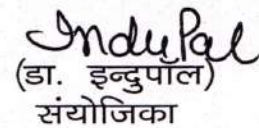 Indu Pal
(डा. इन्दुपॉल)
संयोजिका